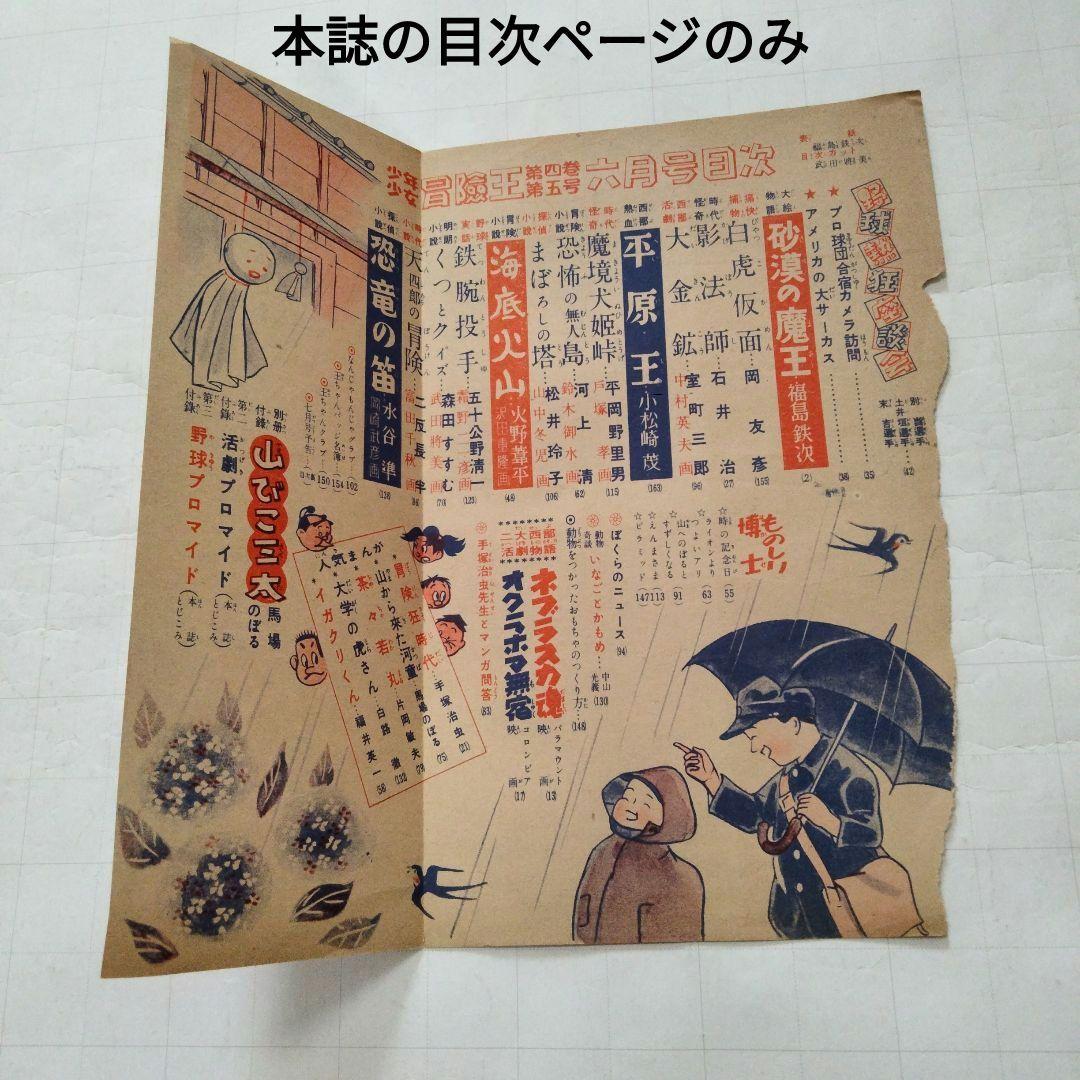 本誌の目次ページのみ
少年少女 冒險王 第四巻第五号 六月号目次
表紙 福島鉄次
目次カット 武田將美
野球熱狂座談会
別所選手
土井垣選手
末吉選手
(42)
★プロ球団合宿カメラ訪問
(35)
★アメリカの大サーカス
(38)
大絵物語 砂漠の魔王 福島鉄次 (2)
痛快捕物 白虎仮面 岡友彦 (155)
時代怪奇 影法師 石井治 (27)
西部活劇 大金鉱 室町三郎 中村英夫画 (96)
西部熱血 平原王 小松崎茂 (163)
時代怪奇 魔境犬姫峠 平岡野里男 戸塚孝画 (115)
冒険小説 恐怖の無人島 河上清 鈴木御水画 (62)
探偵小説 まぼろしの塔 松井玲子 山中冬児画 (106)
冒険小説 海底火山 火野葦平 沢田重隆画 (48)
野球実話 鉄腕投手 五十公野清一
(123)
明朗小説 くつとクイズ 森田すすむ 武田將美画 (70)
時代小説 天四郎の冒険 二反長半 富田千秋画 (84)
探偵小説 恐竜の笛 水谷準 岡崎武彦画 (138)
◎なんじゃもんじゃグラブ 102
◎王ちゃんバッジ名簿 154
◎王ちゃんクラブ 150
◎七月号予告
別冊付録 山びこ三太 馬場のぼる
第一付録 活劇プロマイド (本誌とじこみ)
第二付録 野球プロマイド (本誌とじこみ)
ものしり博士
☆時の記念日 55
☆ライオンよりつよいアリ 63
☆山へのぼるとすずしくなる 91
☆えんまさま 113
☆ピラミッド 147
◎ぼくらのニュース (94)
動物奇談 いなごとかもめ 中山光義 (130)
◎動物をつかったおもちゃのつくり方 (148)
西部活劇二大物語
ネブラスカ魂 パラマウント映画 (13)
オクラホマ無宿 コロンビア映画 (17)
◎手塚治虫先生とマンガ問答 (83)
人気まんが
冒険狂時代 手塚治虫 (21)
山から来た河童 馬場のぼる (75)
茶々若丸 片岡敏夫 (79)
大学の虎さん 白路徹 (132)
イガグリくん 福井英一 58